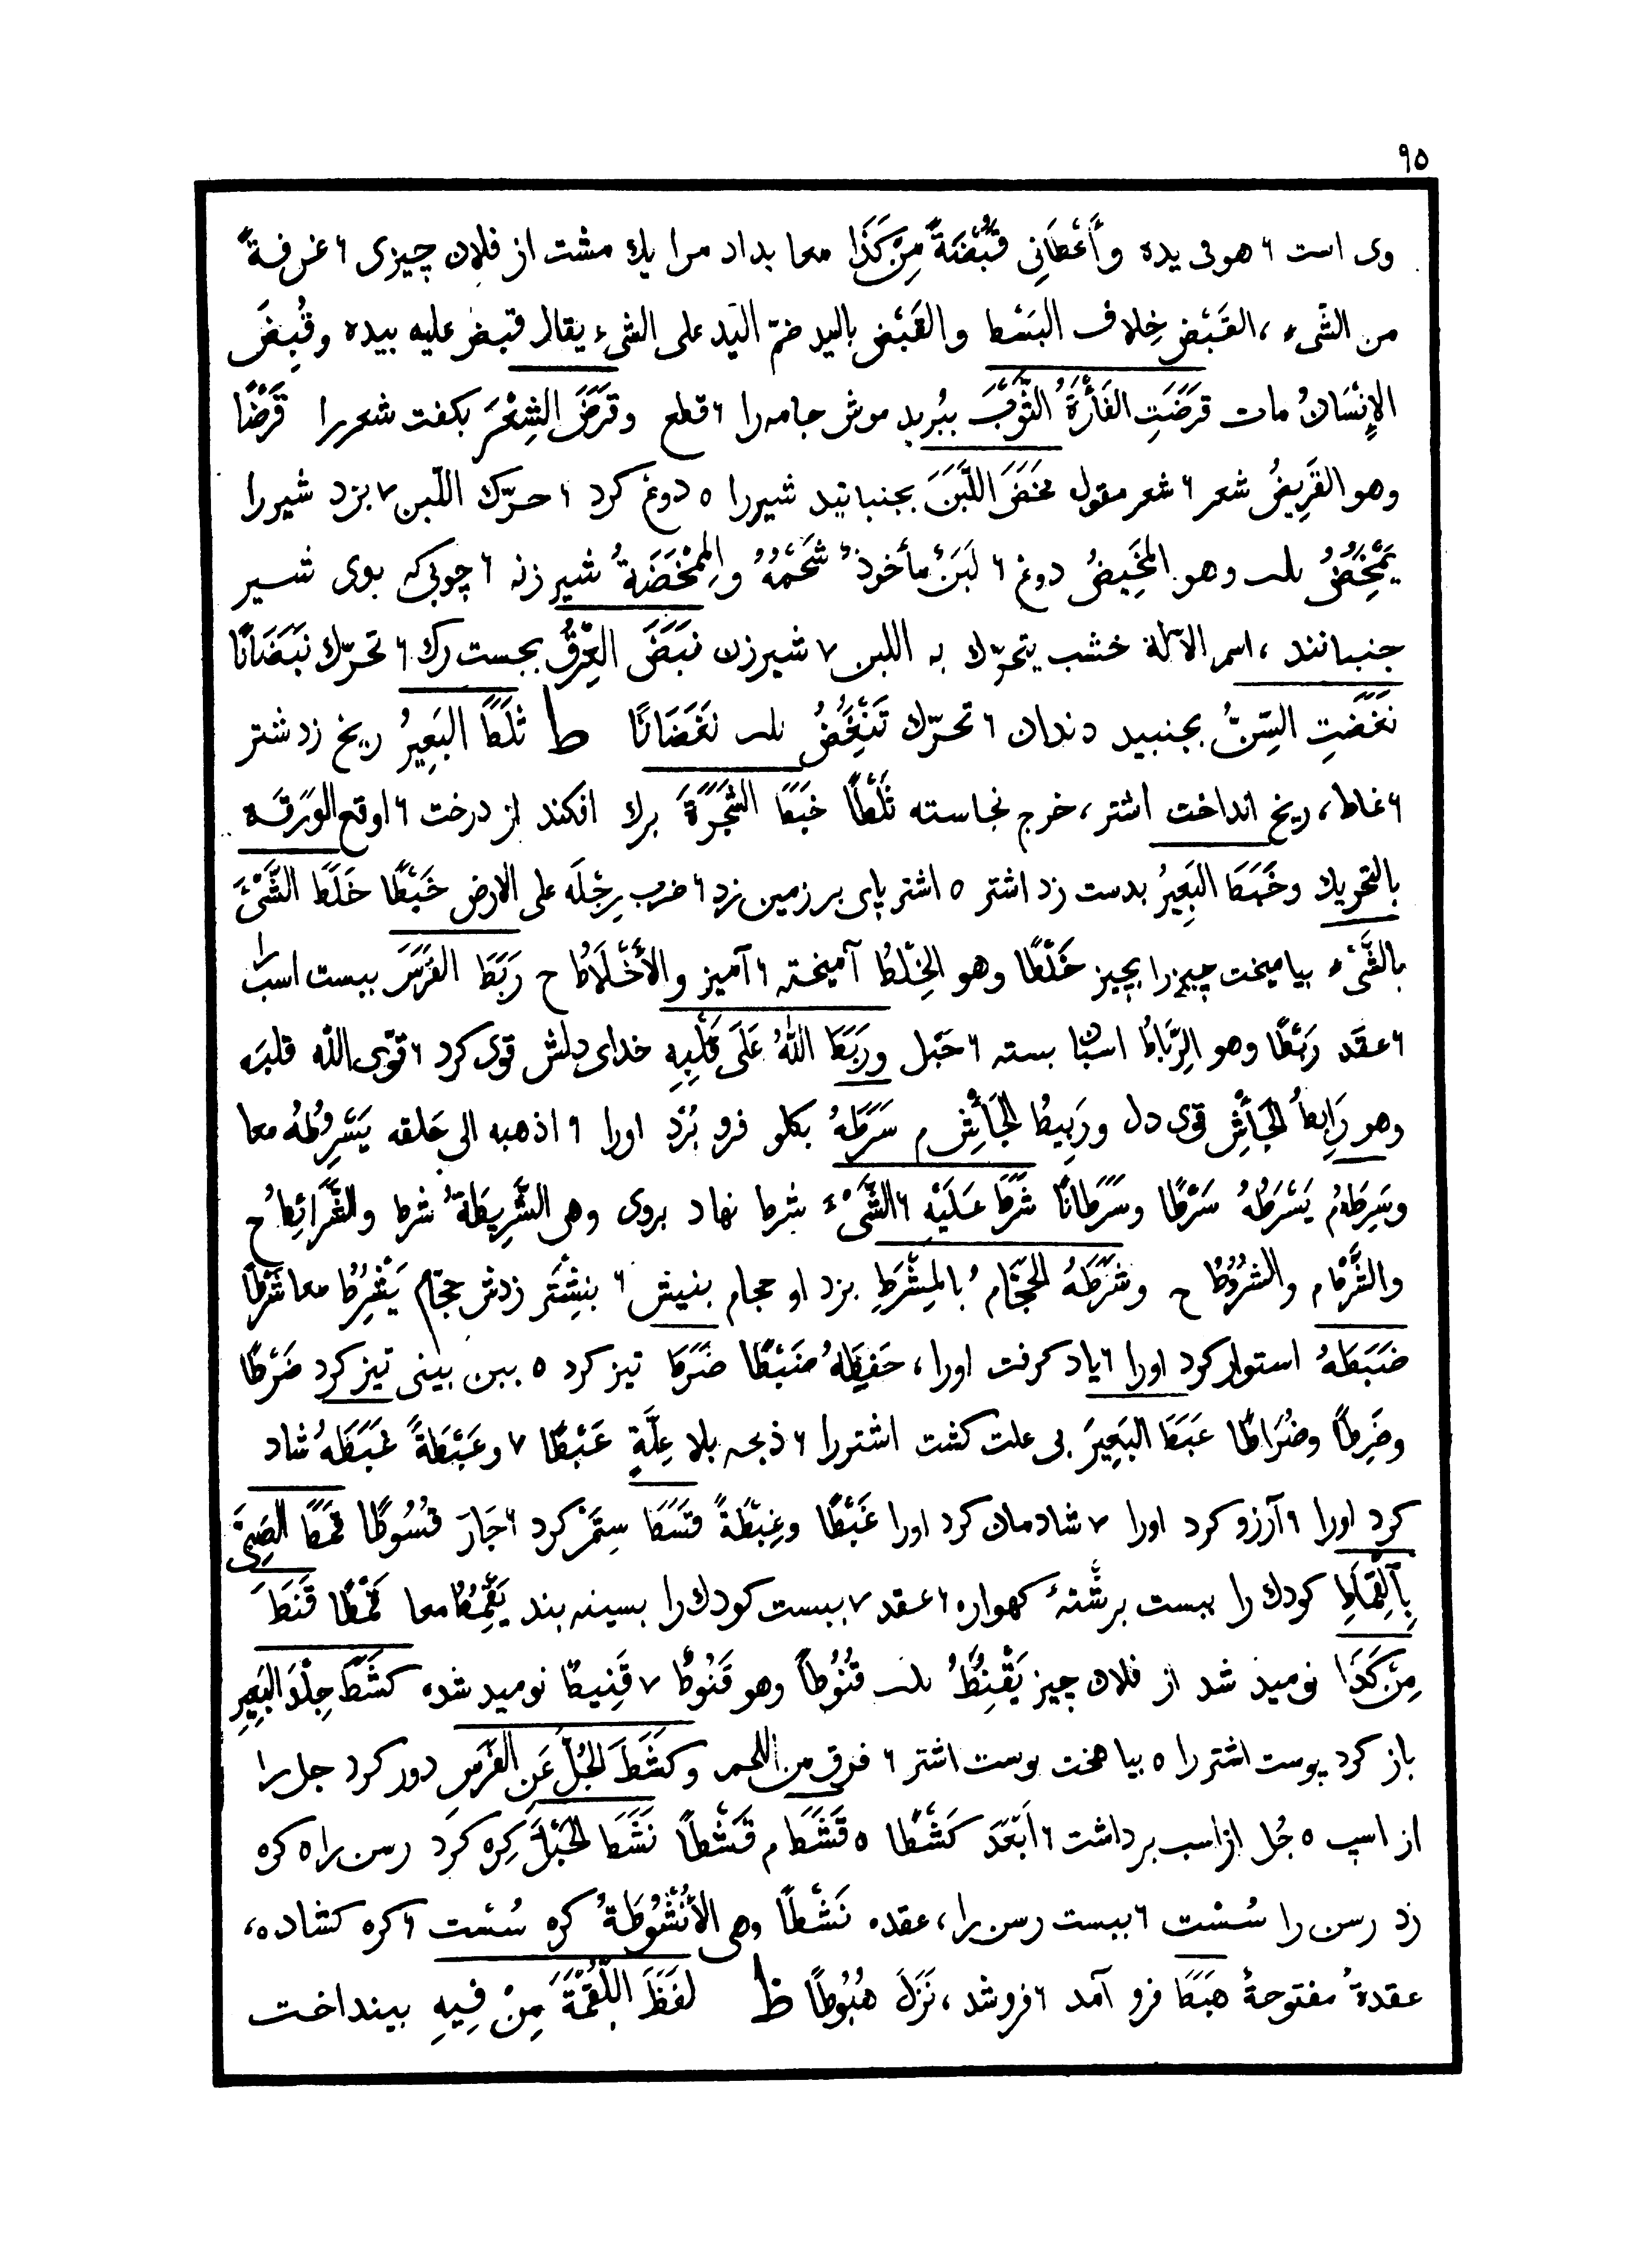 ٩٥
وی است ۶ هو فی یده وأَعْطَانِی قَبْضَةً مِنْ كَذَا معا بداد مرا یك مشت از فلان چیزی ۶ غرفةً
من الشیء ، القَبْض خِلاف البَسْط والقَبْض بالید ضمّ الیَد علی الشیء یقال قبض علیه بیده وقُبِضَ
الإِنْسَانُ مات قَرَضَتِ الفَأْرَةُ الثَّوْبَ ببُرید موش جامه را ۶ قطع وقَرَضَ الشِعْرَ بكفت شعر را قَرْضًا
وهو القَرِیضُ شعر ۶ شعر مقول مَخَضَ اللَّبَنَ بجنبانید شیر را ٥ دوغ كرد ۶ حرّك اللّبن ٧ بزد شیر را
یَمْخَُِضُ ثلث وهو المَخِیضُ دوغ ۶ لَبَنٌ مأخوذٌ شَحْمُهُ والمِمْخَضَةُ شیر زنه ۶ چوبی كه بوی شیر
جنبانند ، اسم الآلة خشب یتحرّك به اللبن ٧ شیرزن نَبَضَ العِرْقُ بجست رك ۶ تحرّك نَبَضَانًا
نَغَضَتِ السِّنُّ بجنبید دندان ۶ تحرّك تَنْغَُِضُ ثلث نَغَضَانًا ط ثَلَطَ البَعِیرُ ریخ زد شتر
۶ غاط ، ریخ انداخت اشتر ، خرج نجاسته ثَلْطًا خَبَطَ الشَّجَرَةَ برك افكند از درخت ۶ اوقع الوَرَقَة
بالتحریك وخَبَطَ البَعِیرُ بدست زد اشتر ٥ اشتر پای بر زمین زد ۶ ضرب رِجْلَه علی الارض خَبْطًا خَلَطَ الشَّیْءَ
بِالشَّیْءِ بیامیخت چیز را بچیز خَلْطًا وهو الخِلْطُ آمیخته ۶ آمیز والأَخْلَاطُ ح رَبَطَ الفَرَسَ ببست اسب را
۶ عقد رَبْطًا وهو الرِّبَاطُ اسب بسته ۶ حَبْل ورَبَطَ اللّٰهُ عَلَی قَلْبِهِ خدای دلش قوی كرد ۶ قوّی اللّه قلبَه
وهو رَابِطُ الجَأْشِ قوی دل ورَبِیطُ الجَأْشِ م سَرَطَهُ بكلو فرو بُرد اورا ۶ اذهبه الی حَلقه یَسْرُِطُهُ معا
وسَرِطَهُ م یَسْرَطُهُ سَرْطًا وسَرَطَانًا شَرَطَ عَلَیْهِ ۶ الشَّیْءَ شرط نهاد بروی وهی الشَّرِیطَةُ شرط والشَّرَائِطُ ح
والشَّرْطُ م والشُرُوطُ ح وشَرَطَهُ الحَجَّامُ بالمِشْرَطِ بزد او حجام بنیش ۶ بنِشْتَر زدش حجّام یَشْرُِطُ معا شَرْطًا
ضَبَطَهُ استوار كرد اورا ۶ یاد كرفت اورا ، حَفِظَهُ ضَبْطًا ضَرَطَ تیز كرد ٥ ببن بینی تیز كرد ضَرْطًا
وضَرِطًا وضُرَاطًا عَبَطَ البَعِیرَ بی علت كشت اشتر را ۶ ذبحه بلا عِلّةٍ عَبْطًا ٧ وعَبْطَةً غَبَطَهُ شاد
كرد اورا ۶ آرزو كرد اورا ٧ شادمان كرد اورا غَبْطًا وغِبْطَةً قَسَطَ سِتَمْ كرد ۶ جَارَ قُسُوطًا قَمَطَ الصَبِیَّ
بِالقِمَاطِ كودك را ببست برشتهٔ كهواره ۶ عقد ٧ ببست كودك را بسینه بند یَقْمُِطُ معا قَمْطًا قَنَطَ
مِنْ كَذَا نومید شد از فلان چیز یَقْنَُِطُ ثلث قُنُوطًا وهو قَنُوطٌ ٧ قَنِیطٌ نومید شده كَشَطَ جِلْدَ البَعِیرِ
باز كرد پوست اشتر را ٥ بیاهخت پوست اشتر ۶ فرق من اللحم وكَشَطَ الجُلَّ عَنِ الفَرَسِ دور كرد جل را
از اسپ ٥ جُل از اسب برداشت ۶ اَبْعَدَ كَشْطًا ٥ قَشَطَ م قَشْطًا نَشَطَ الحَبْلَ كِره كَرد رسن را ٥ كره
زد رسن را سُسْت ۶ ببست رسن را ، عقده نَشْطًا وهی الأُنْشُوطَةُ كره سُسْت ۶ كره كشاده ،
عقدةٌ مفتوحةٌ هَبَطَ فرو آمد ۶ فروشد ، نَزَلَ هُبُوطًا ظ لَفَظَ اللُّقْمَةَ مِنْ فِیهِ بینداخت